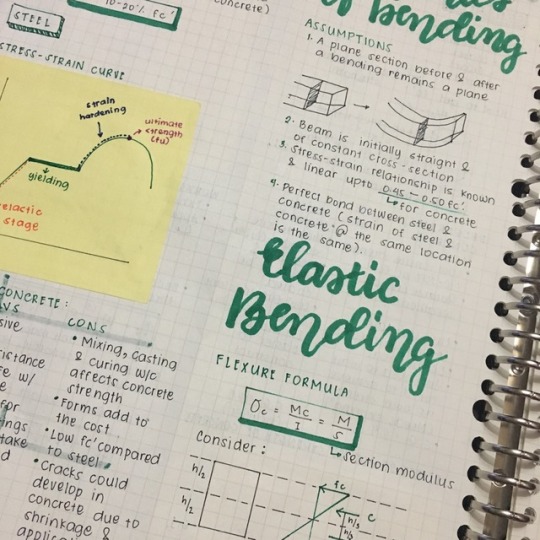 10-20% fc'
STEEL
STRESS-STRAIN CURVE
strain
hardening
ultimate
strength
(fu)
yielding
elastic
stage
CONCRETE:
CONS
• Mixing, casting
& curing w/c
affects concrete
strength
• Forms add to
the cost
• Low fc' compared
to steel
• Cracks could
develop in
concrete due to
shrinkage &
concrete)
of Bending
ASSUMPTIONS
1. A plane section before & after
a bending remains a plane
2. Beam is initially straight &
of constant cross-section
3. Stress-strain relationship is known
& linear upto 0.45 - 0.50 fc'
↳ for concrete
4. Perfect bond between steel &
concrete (strain of steel &
concrete @ the same location
is the same).
Elastic
Bending
FLEXURE FORMULA
σc = Mc/I = M/S
↳ section modulus
Consider:
h/2
h/2
fc
c
h/3
h/3